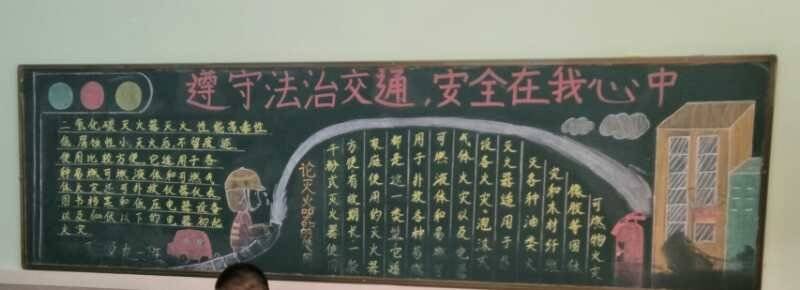 遵守法治交通,安全在我心中
二氧化碳灭火器灭火性能高毒性
低腐蚀性小灭火后不留痕迹
使用比较方便它适用于各
种易燃可燃液体和可燃气
体火灾还可扑救仪器仪表
图书档和低压电器设备
以及和伏以下的电器初起
火灾
论灭火器的
干粉式灭火器使
方便有效期长一般
家庭使用的灭火器
都是这一类型它适
用于扑救各种易燃
可燃液体和易燃
气体火灾以及电器
设备火灾。泡沫式
灭火器适用于
灭各种油类火
灾和木材纤维
橡胶等固体
可燃物火灾